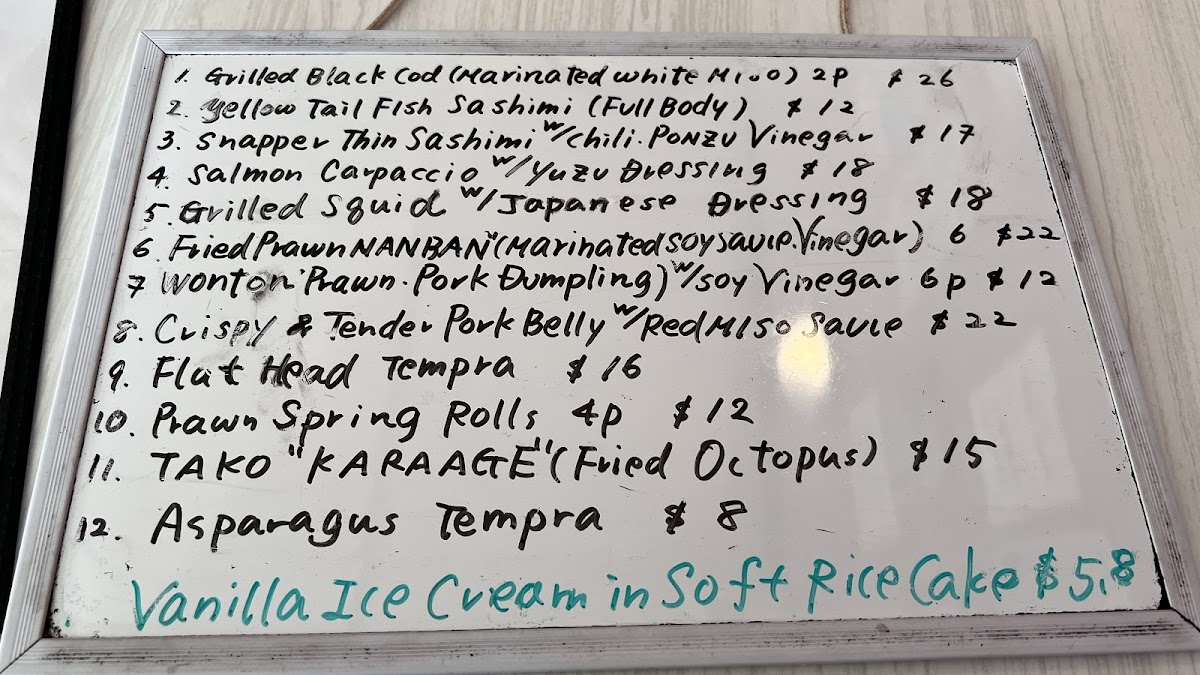 1. Grilled Black Cod (Marinated white Miso) 2P $26
2. Yellow Tail Fish Sashimi (Full Body) $12
3. Snapper Thin Sashimi w/chili.PONZU Vinegar $17
4. Salmon Carpaccio w/YUZU Dressing $18
5. Grilled Squid w/Japanese Dressing $18
6 Fried Prawn NANBAN"(Marinated soy sauce.Vinegar) 6 $22
7 Wonton"Prawn.Pork Dumpling) w/soy Vinegar 6p $12
8. Crispy & Tender Pork Belly w/Red MISO Sauce $22
9. Flat Head Tempra $16
10. Prawn Spring Rolls 4p $12
11. TAKO "KARAAGE" (Fried Octopus) $15
12. Asparagus Tempra $8
Vanilla Ice Cream in Soft Rice Cake $5.8